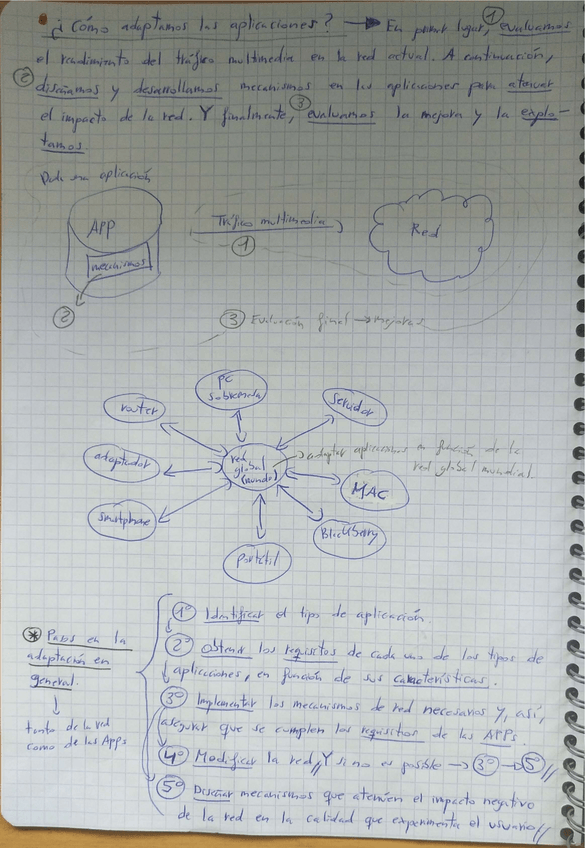 ¿Cómo adaptamos las aplicaciones? → En primer lugar, ① evaluamos
el rendimiento del tráfico multimedia en la red actual. A continuación,
② diseñamos y desarrollamos mecanismos en las aplicaciones para atenuar
el impacto de la red. Y finalmente, ③ evaluamos la mejora y la explo-
tamos.
Dada una aplicación
APP
mecanismos
②
Tráfico multimedia
①
Red
③ Evaluación final → mejoras
PC
sobremesa
router
servidor
adaptador
red
global
(mundo)
→ adaptar aplicaciones en función de la
red global mundial.
MAC
smartphone
BlackBerry
portátil
* Pasos en la
adaptación en
general.
↓
tanto de la red
como de las Apps
1º Identificar el tipo de aplicación
2º Obtener los requisitos de cada uno de los tipos de
aplicaciones, en función de sus características.
3º Implementar los mecanismos de red necesarios Y, así,
asegurar que se cumplen los requisitios de las APPs.
4º Modificar la red // Y si no es posible → 3º → 5º //
5º Diseñar mecanismos que atenúen el impacto negativo
de la red en la calidad que experimenta el usuario //